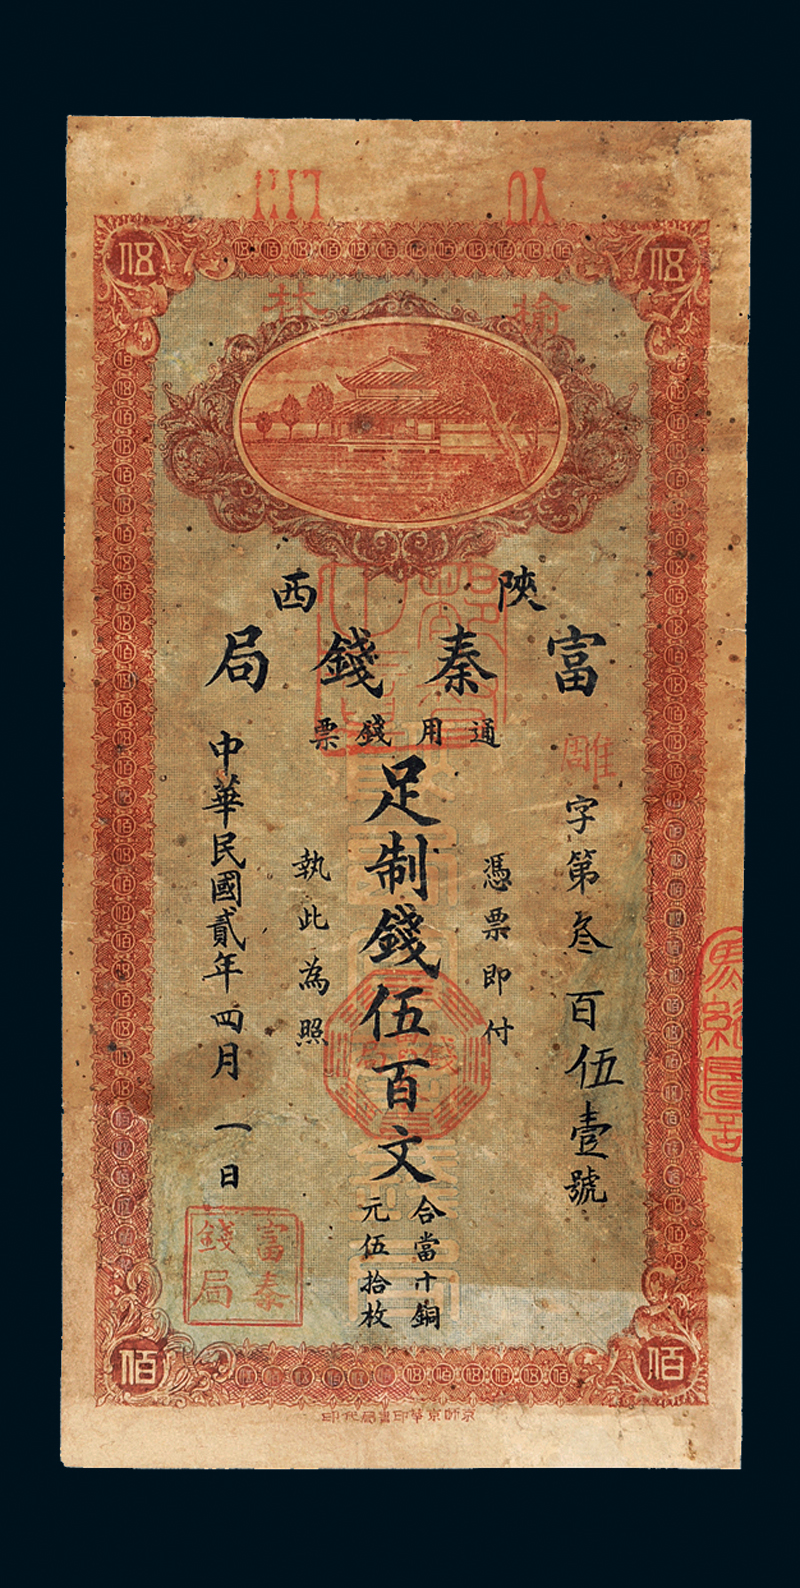 榆林
陝西
富秦錢局
通用錢票
雕字第叁百伍壹號
憑票即付
足制錢伍百文
合當十銅
元伍拾枚
執此為照
中華民國貳年四月一日
富秦
錢局
伍
伍
佰
佰
京師京華印書局代印